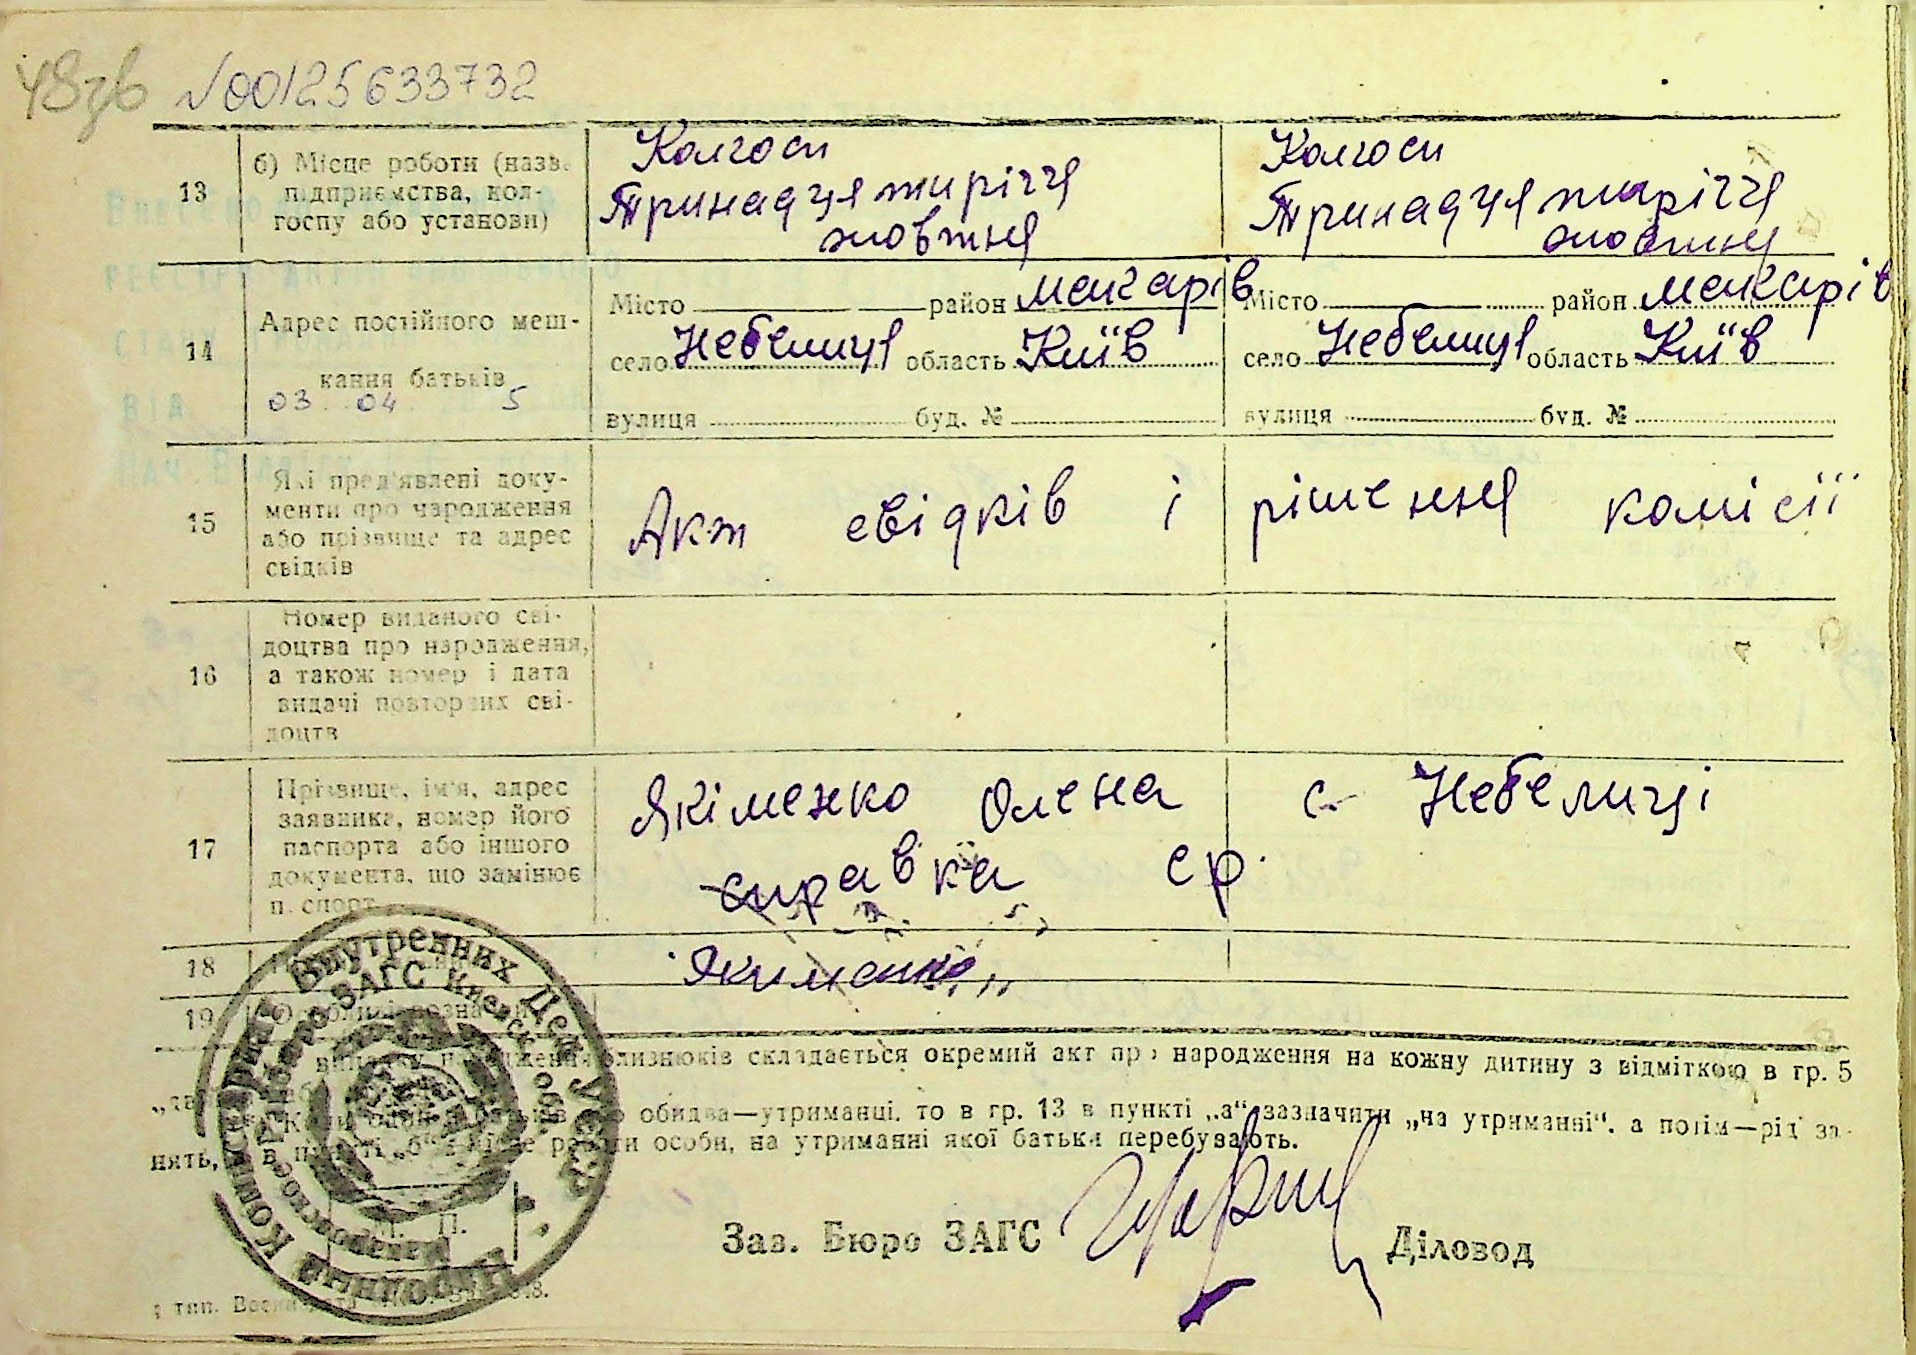 48зв №00125633732
13
б) Місце роботи (назв.
підприємства, кол-
госпу або установи)
Колгосп
Тринадцятиріччя
жовтня
Колгосп
Тринадцятиріччя
жовтня
14
Адрес постійного меш-
кання батьків
03 04 5
Місто район Макарів
село Небелиця область Київ
вулиця буд. №
Місто район Макарів
село Небелиця область Київ
вулиця буд. №
15
Які пред'явлені доку-
менти про народження
або прізвище та адрес
свідків
Акт свідків і рішення комісії
16
Номер виданого сві-
доцтва про народження,
а також номер і дата
видачі повторних сві-
доцтв
17
Прізвище, ім'я, адрес
заявника, номер його
паспорта або іншого
документа, що замінює
паспорт
Якіменко Олена с. Небелиці
справка ср.
18
Якименко
19
народження близнюків складається окремий акт про народження на кожну дитину з відміткою в гр. 5
обидва—утриманці, то в гр. 13 в пункті „а“ зазначити „на утриманні“, а потім—рід за-
нять, в пункті „б“ роботи особи, на утриманні якої батьки перебувають.
М. П.
Зав. Бюро ЗАГС
Діловод
Народный Комиссариат Внутренних Дел УССР
Райбюро ЗАГС Киевской обл.
тип.